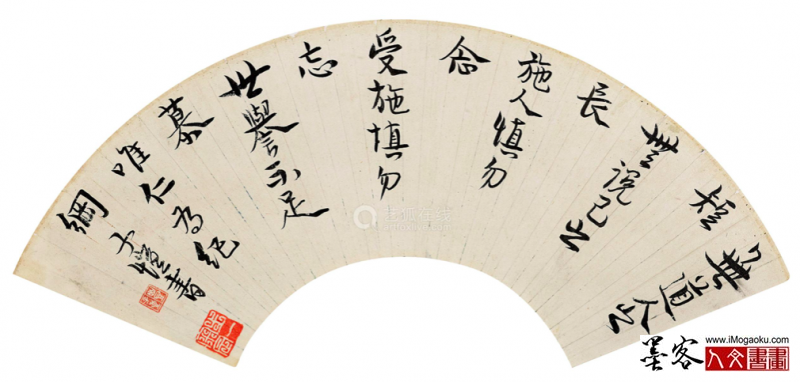 無道人之
短
無說己之
長
施人慎勿
念
受施慎勿
忘
世譽不足
慕
唯仁為紀
綱
子愷書
墨客
www.iMogaoku.com
人文書畫